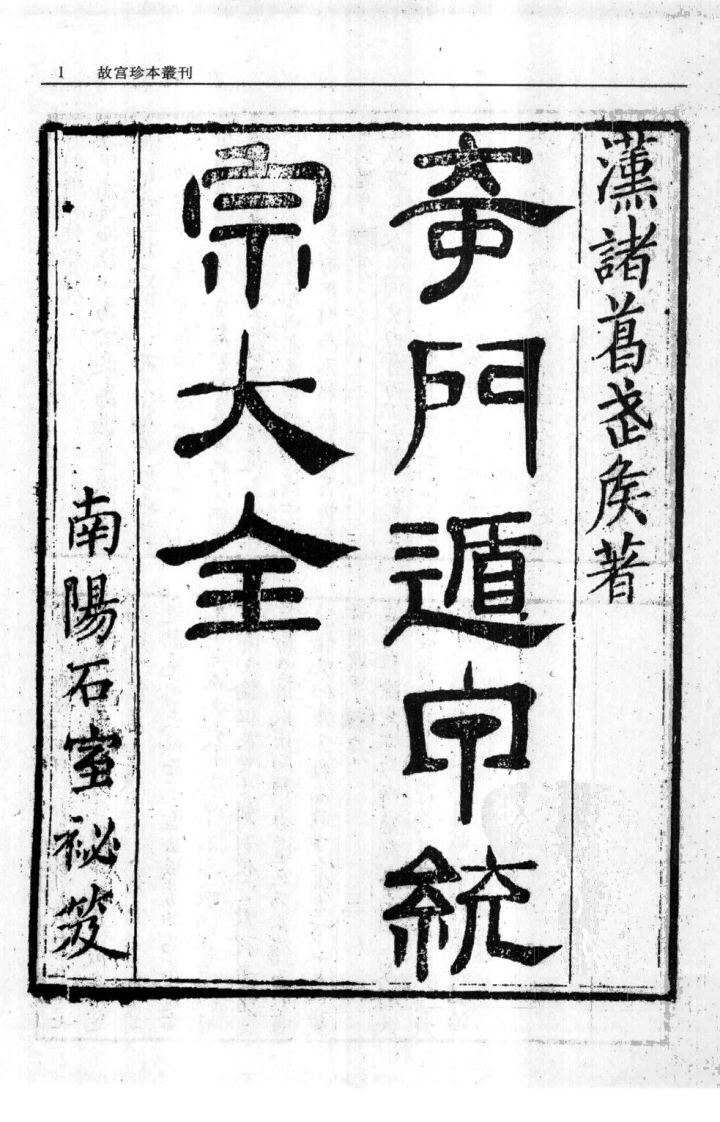 1 故宮珍本叢刊
漢諸葛武侯著
奇門遁甲統
宗大全
南陽石室祕笈